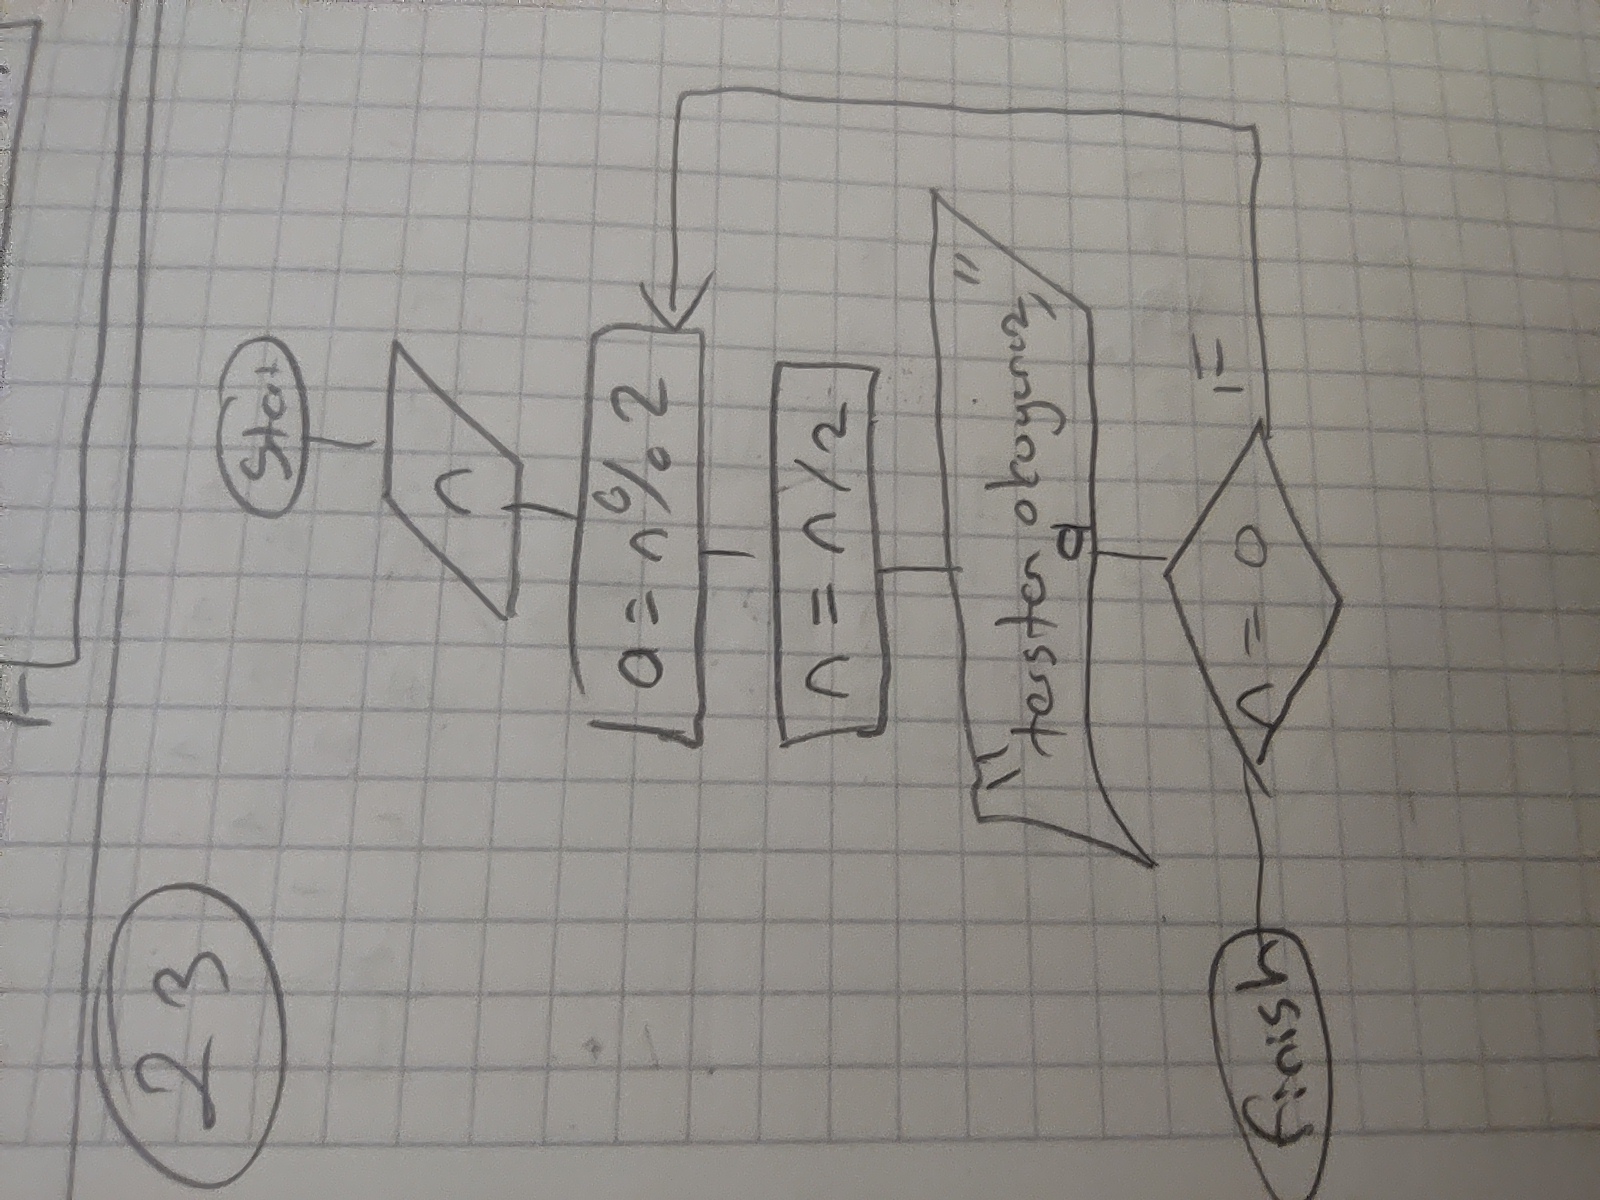 23
Start
n
a = n % 2
n = n / 2
"tersten okuyunuz"
a
n = 0
F
finish